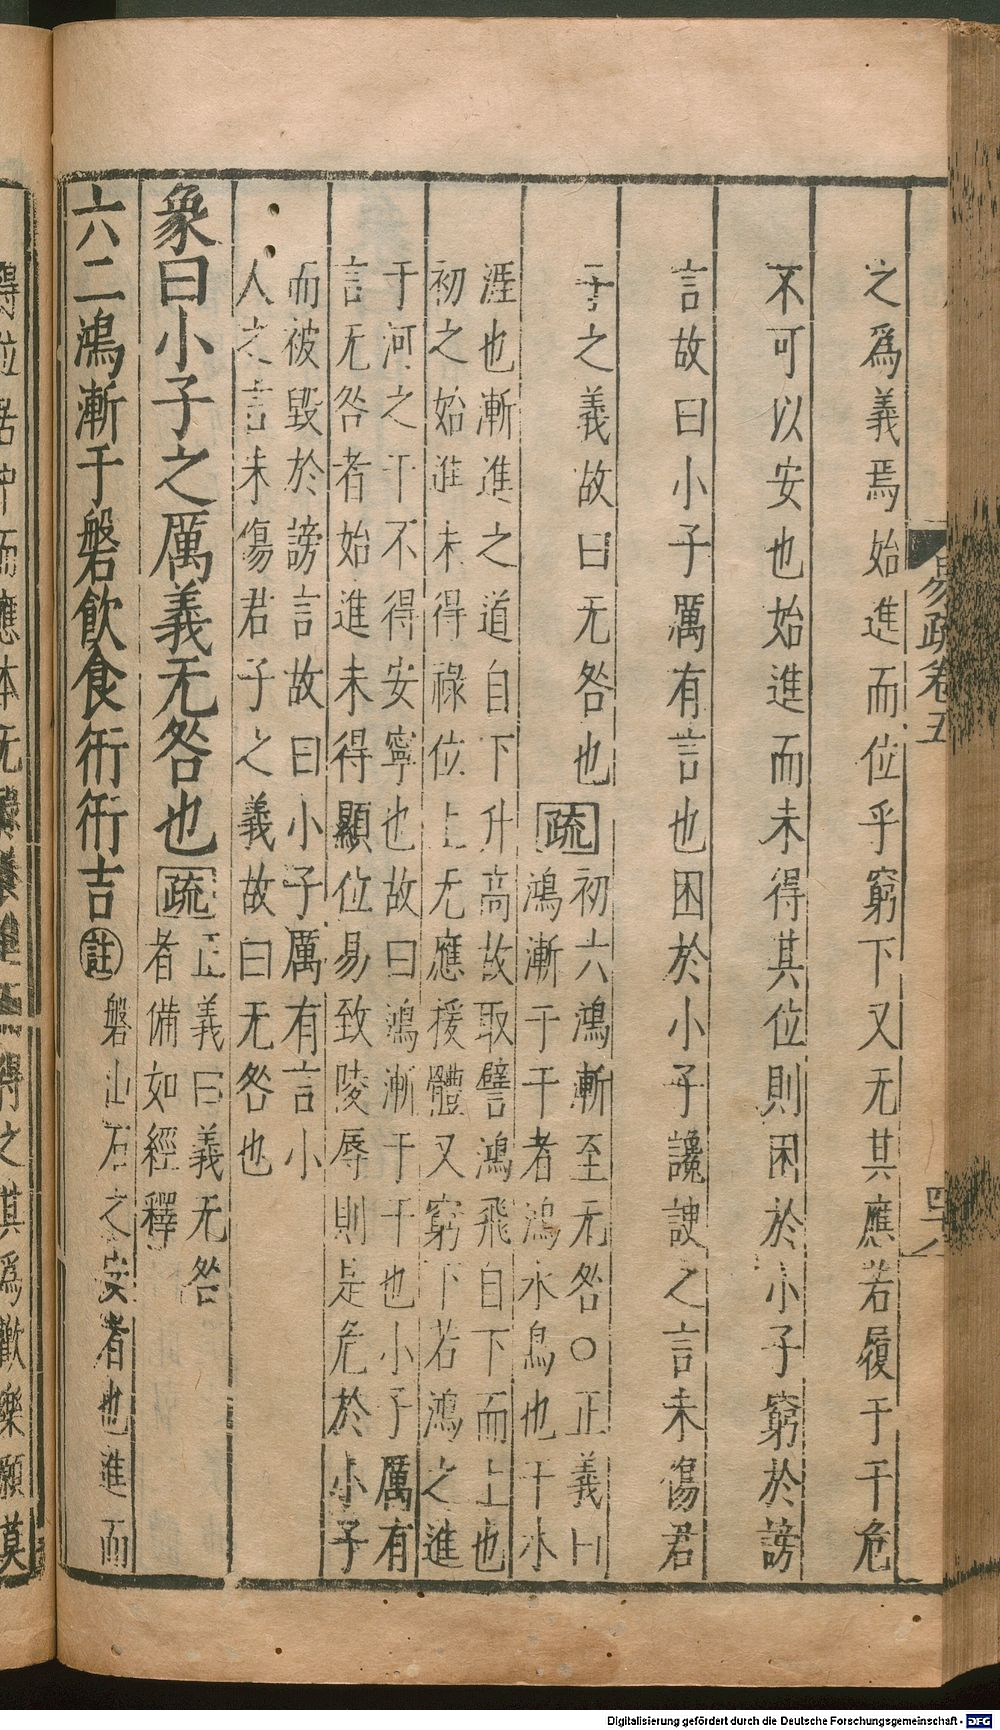 之爲義焉始進而位乎窮下又无其應若履于干危
不可以安也始進而未得其位則困於小子窮於謗
言故曰小子厲有言也困於小子讒諛之言未傷君
子之義故曰无咎也疏初六鴻漸至无咎○正義曰
鴻漸于干者鴻水鳥也干水
涯也漸進之道自下升高故取譬鴻飛自下而上也
初之始進未得祿位上无應援體又窮下若鴻之進
于河之干不得安寧也故曰鴻漸于干也小子厲有
言无咎者始進未得顯位易致陵辱則是危於小子
而被毀於謗言故曰小子厲有言小
人之言未傷君子之義故曰无咎也
象曰小子之厲義无咎也疏正義曰義无咎
者備如經釋
六二鴻漸于磐飲食衎衎吉註磐山石之安者也進而
易疏卷五
得位居中而應本无祿養進而得之其爲歡樂願莫
Digitalisierung gefördert durch die Deutsche Forschungsgemeinschaft - DFG